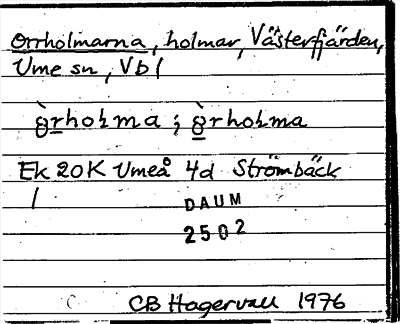 Orrholmarna, holmar, Västerfjärden,
Ume sn, Vb l
Ek 20K Umeå 4d Strömbäck
DAUM
2502
CB Hagervall 1976